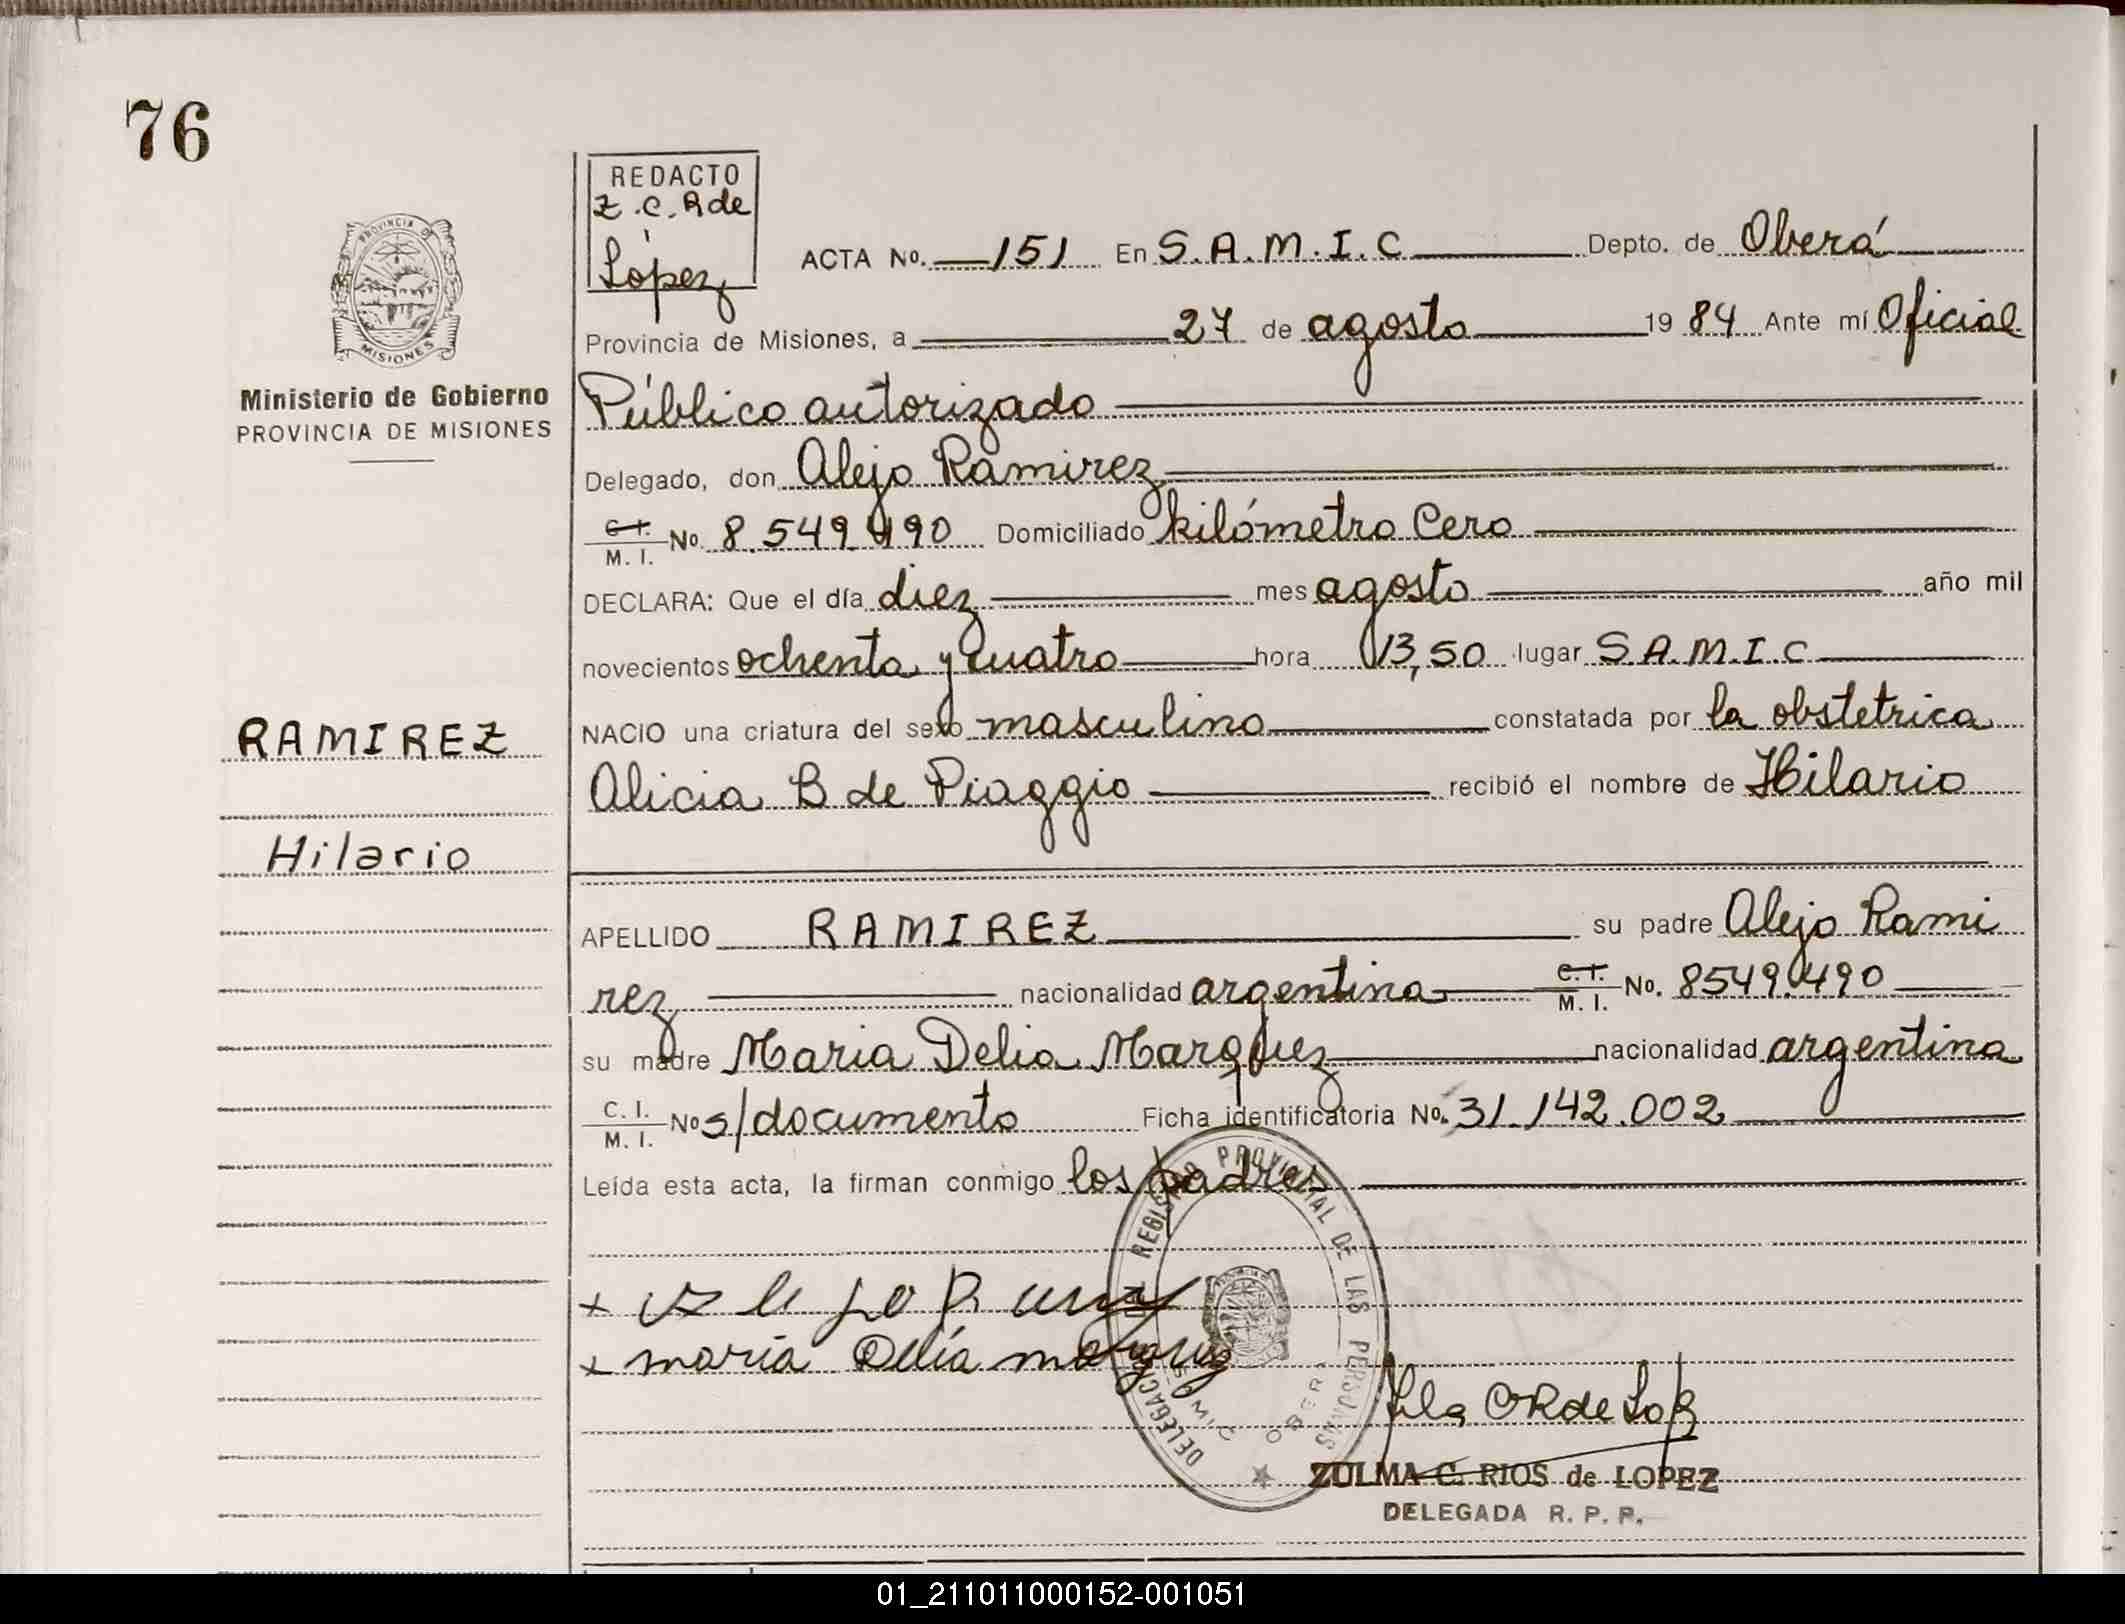 76
REDACTO
Z.C.R de
López
PROVINCIA DE
MISIONES
Ministerio de Gobierno
PROVINCIA DE MISIONES
ACTA No. 151 En S.A.M.I.C Depto. de Oberá
Provincia de Misiones, a 27 de agosto 19 84 Ante mí Oficial
Público autorizado
Delegado, don Alejo Ramirez
C.I. M. I. No. 8.549.490 Domiciliado kilómetro Cero
DECLARA: Que el día diez mes agosto año mil
novecientos ochenta y cuatro hora 13,50 lugar S.A.M.I.C
NACIO una criatura del sexo masculino constatada por la obstetrica
Alicia B de Piaggio recibió el nombre de Hilario
RAMIREZ
Hilario
APELLIDO RAMIREZ su padre Alejo Rami
rez nacionalidad argentina C.I. M. I. No. 8549.490
su madre Maria Delia Marquez nacionalidad argentina
C. I. M. I. No s/documento Ficha identificatoria No. 31.142.002
Leída esta acta, la firman conmigo los padres
REGISTRO PROVINCIAL DE LAS PERSONAS
DELEGACION
SAMIC OBERA
x Alejo
x maria Delia marquez
ZULMA C. RIOS de LOPEZ
DELEGADA R. P. P.
01_211011000152-001051